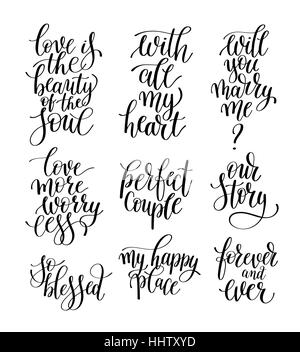 love is
the
beauty
of the
soul
with
all
my
heart
will
you
marry
me
?
love
more
worry
less
perfect
couple
our
story
so
blessed
my happy
place
forever
and
ever
alamy stock photo
HHTXYD